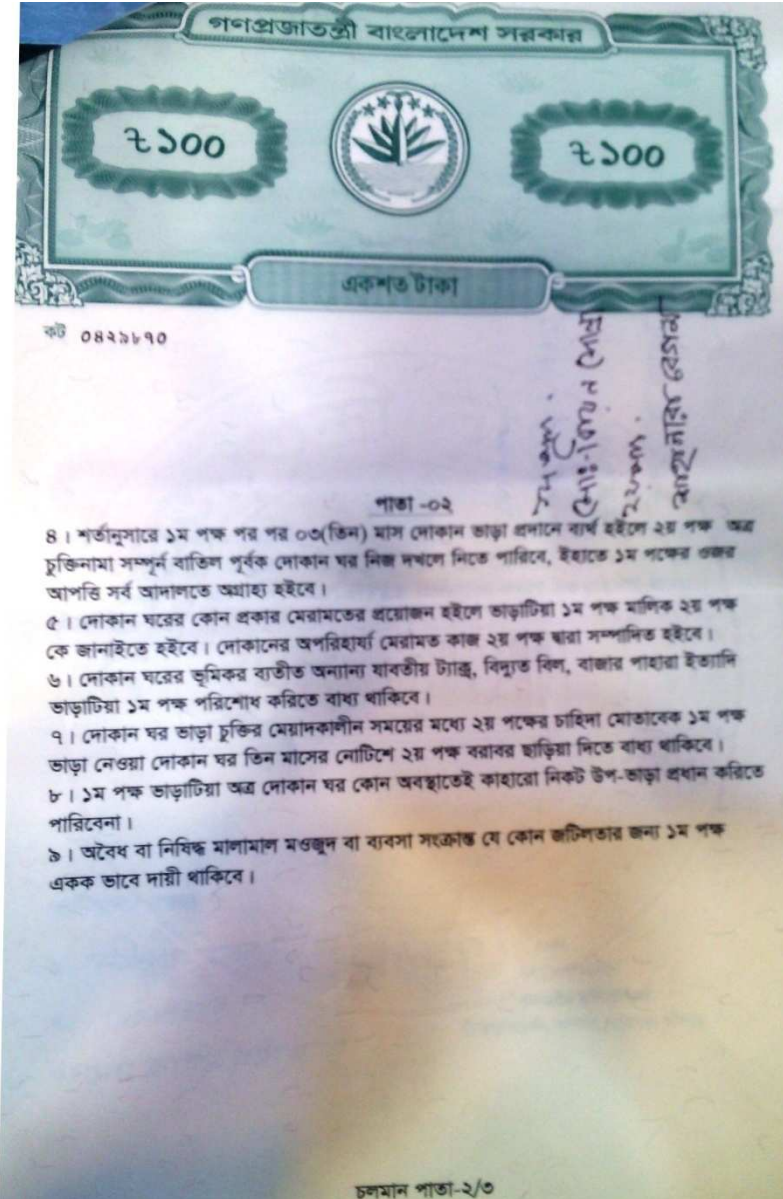 গণপ্রজাতন্ত্রী বাংলাদেশ সরকার
৳১০০
৳১০০
একশত টাকা
কট ০৪২৯৮৭০
১ম পক্ষ।
মোঃ
২য় পক্ষ।
বেগম
পাতা -০২
৪। শর্তানুসারে ১ম পক্ষ পর পর ০৩(তিন) মাস দোকান ভাড়া প্রদানে ব্যর্থ হইলে ২য় পক্ষ অত্র
চুক্তিনামা সম্পূর্ন বাতিল পূর্বক দোকান ঘর নিজ দখলে নিতে পারিবে, ইহাতে ১ম পক্ষের ওজর
আপত্তি সর্ব আদালতে অগ্রাহ্য হইবে।
৫। দোকান ঘরের কোন প্রকার মেরামতের প্রয়োজন হইলে ভাড়াটিয়া ১ম পক্ষ মালিক ২য় পক্ষ
কে জানাইতে হইবে। দোকানের অপরিহার্য্য মেরামত কাজ ২য় পক্ষ দ্বারা সম্পাদিত হইবে।
৬। দোকান ঘরের ভূমিকর ব্যতীত অন্যান্য যাবতীয় ট্যাক্স, বিদ্যুত বিল, বাজার পাহারা ইত্যাদি
ভাড়াটিয়া ১ম পক্ষ পরিশোধ করিতে বাধ্য থাকিবে।
৭। দোকান ঘর ভাড়া চুক্তির মেয়াদকালীন সময়ের মধ্যে ২য় পক্ষের চাহিদা মোতাবেক ১ম পক্ষ
ভাড়া নেওয়া দোকান ঘর তিন মাসের নোটিশে ২য় পক্ষ বরাবর ছাড়িয়া দিতে বাধ্য থাকিবে।
৮। ১ম পক্ষ ভাড়াটিয়া অত্র দোকান ঘর কোন অবস্থাতেই কাহারো নিকট উপ-ভাড়া প্রধান করিতে
পারিবেনা।
৯। অবৈধ বা নিষিদ্ধ মালামাল মওজুদ বা ব্যবসা সংক্রান্ত যে কোন জটিলতার জন্য ১ম পক্ষ
একক ভাবে দায়ী থাকিবে।
চলমান পাতা-২/৩